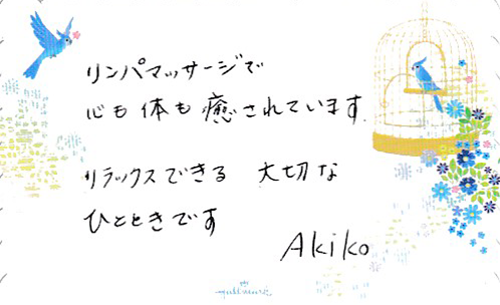 リンパマッサージで
心も体も癒されています
リラックスできる 大切な
ひとときです
Akiko